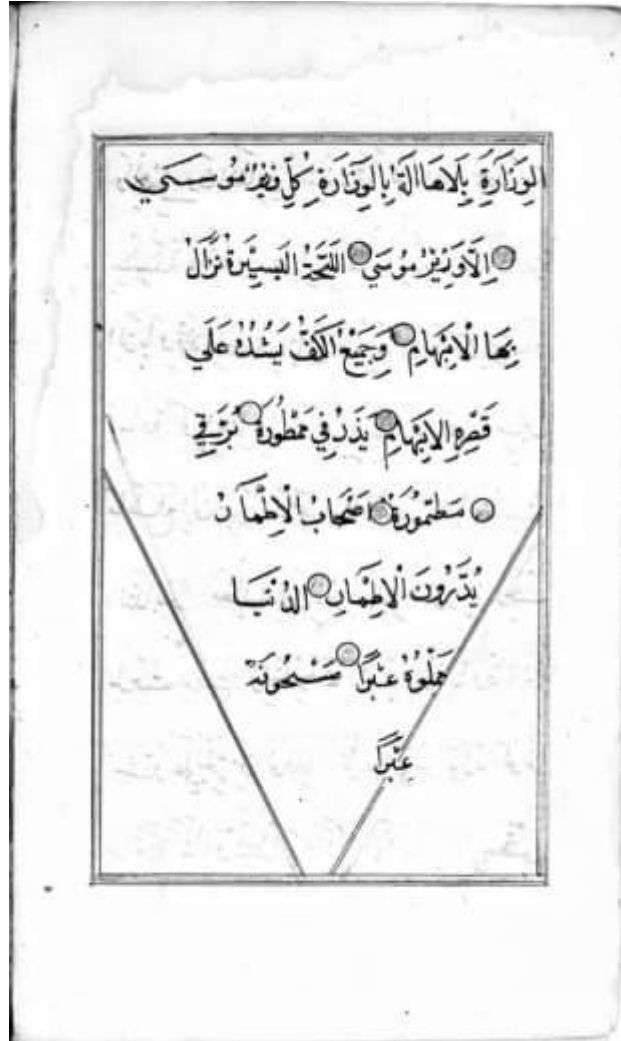 الوِزَارَةِ بِلَاهَا الَة بِالوِزَارَة كُلِّ وَزِيْرْ مُوسَي
اِلَّا وَزِيْرْ مُوسَي اللَّمْحَة اليَسِيْرَة تُزَال
بِهَا الْاِبْهَامِ وَجَمِيْعُ الكَفّ يَشُدُّهُ عَلَي
قَصْرِهِ الاِبْهَامِ يَذَرْ فِي مَمْطُورَة
مَطْمُورَة اَصْحَابُ الْاِطْمَان
يُذَرُّونَ الْاِطْمَانِ الدُنْيَا
مَمْلُوة عِبْرًا مَشْحُونَة
عِبَرًا